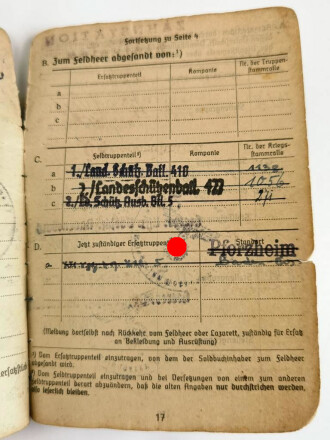 Fortsetzung zu Seite 4
B. Zum Feldheer abgesandt von:¹)
Ersatztruppenteil Kompanie Nr. der Truppen-
stammrolle
a
b
c
C. Feldtruppenteil²) Kompanie Nr. der Kriegs-
stammrolle
a 1./Land. Schütz. Batl. 410
b 2./Landesschützenbatl. 427 1056
c 2./Ls. Schütz. Ausb. Btl. 5
D. Jetzt zuständiger Ersatztruppenteil Standort
Pforzheim
(Meldung dortselbst nach Rückkehr vom Feldheer oder Lazarett, zuständig für Ersatz
an Bekleidung und Ausrüstung)
¹) Vom Ersatztruppenteil einzutragen, von dem der Soldbuchinhaber zum Feldheer
abgesandt wird.
²) Vom Feldtruppenteil einzutragen und bei Versetzungen von einem zum anderen
Feldtruppenteil derart abzuändern, daß die alten Angaben nur durchstrichen werden,
also leserlich bleiben.
17